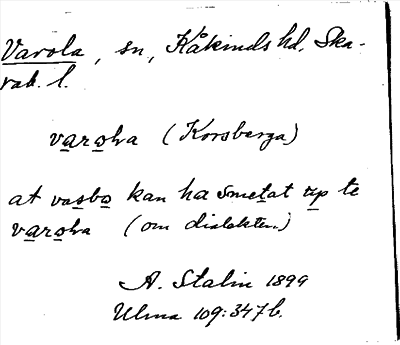 Varola, sn, Kåkinds hd, Ska-
rab. l.
varola (Korsberga)
at vasbo kan ha smetat up te
varola (om dialekten.)
A. Stalin 1899
Ulma 109:347 b.